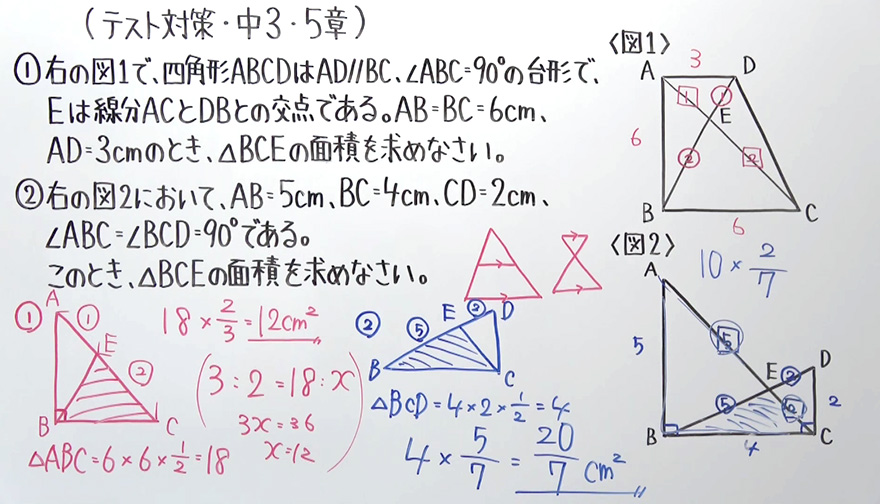 (テスト対策・中3・5章)
①右の図1で、四角形ABCDはAD//BC、∠ABC=90°の台形で、
Eは線分ACとDBとの交点である。AB=BC=6cm、
AD=3cmのとき、△BCEの面積を求めなさい。
②右の図2において、AB=5cm、BC=4cm、CD=2cm、
∠ABC=∠BCD=90°である。
このとき、△BCEの面積を求めなさい。
〈図1〉
3
A
D
1
1
E
6
2
2
B
C
6
〈図2〉
10×2/7
A
5
5
E
D
②
⑤
2
2
B
C
4
①
A
①
E
②
B
C
18×2/3=12cm²
(3:2=18:x)
3x=36
x=12
△ABC=6×6×1/2=18
②
⑤
E
②
D
B
C
△BCD=4×2×1/2=4
4×5/7=20/7cm²